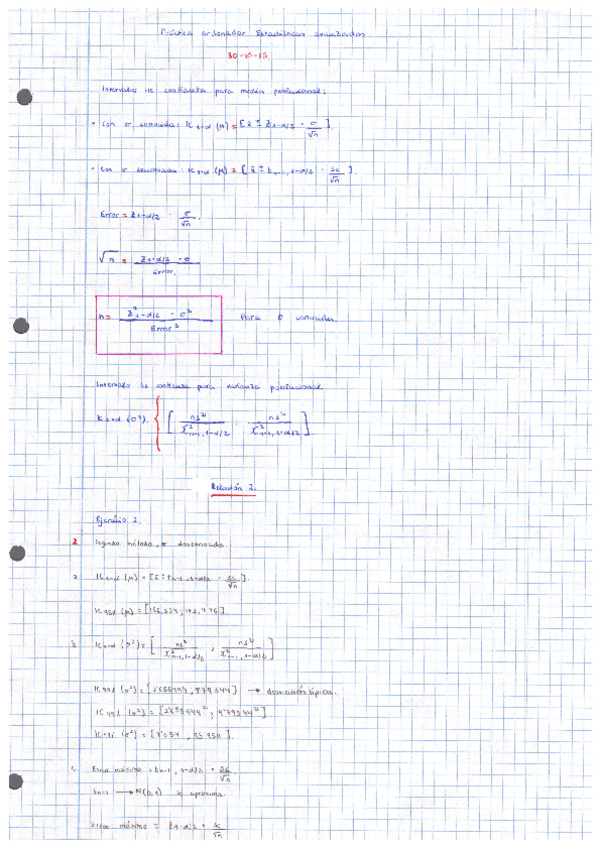 Práctica ordenador Estadísticas avanzadas
30-10-15
Intervalos de confianza para media poblacional:
- Con σ conocida: IC 1-α (μ) = [x̄ ± Z1-α/2 · σ/√n].
- Con σ desconocida: IC 1-α (μ) = [x̄ ± tn-1, 1-α/2 · Sc/√n].
Error = Z1-α/2 · σ/√n.
√n = Z1-α/2 · σ / Error.
n = Z²1-α/2 · σ² / Error² para σ conocida.
Intervalo de confianza para varianza poblacional.
IC 1-α (σ²). { [ ns² / χ²n-1, 1-α/2 ; ns² / χ²n-1, 1-α/2 ]
Relación 7.
Ejercicio 2.
2. Segundo método, σ desconocida.
a. IC 1-α (μ) = [x̄ ± tn-1, 1-α/2 · Sc/√n].
b. IC 1-α (σ²) = [ ns² / χ²n-1, 1-α/2 ; ns² / χ²n-1, 1-α/2 ]
→ desviación típica.
c. Error máximo = tn-1, 1-α/2 · Sc/√n
tn-1 → N(0,1) se aproxima.
Error máximo = Z1-α/2 · Sc/√n